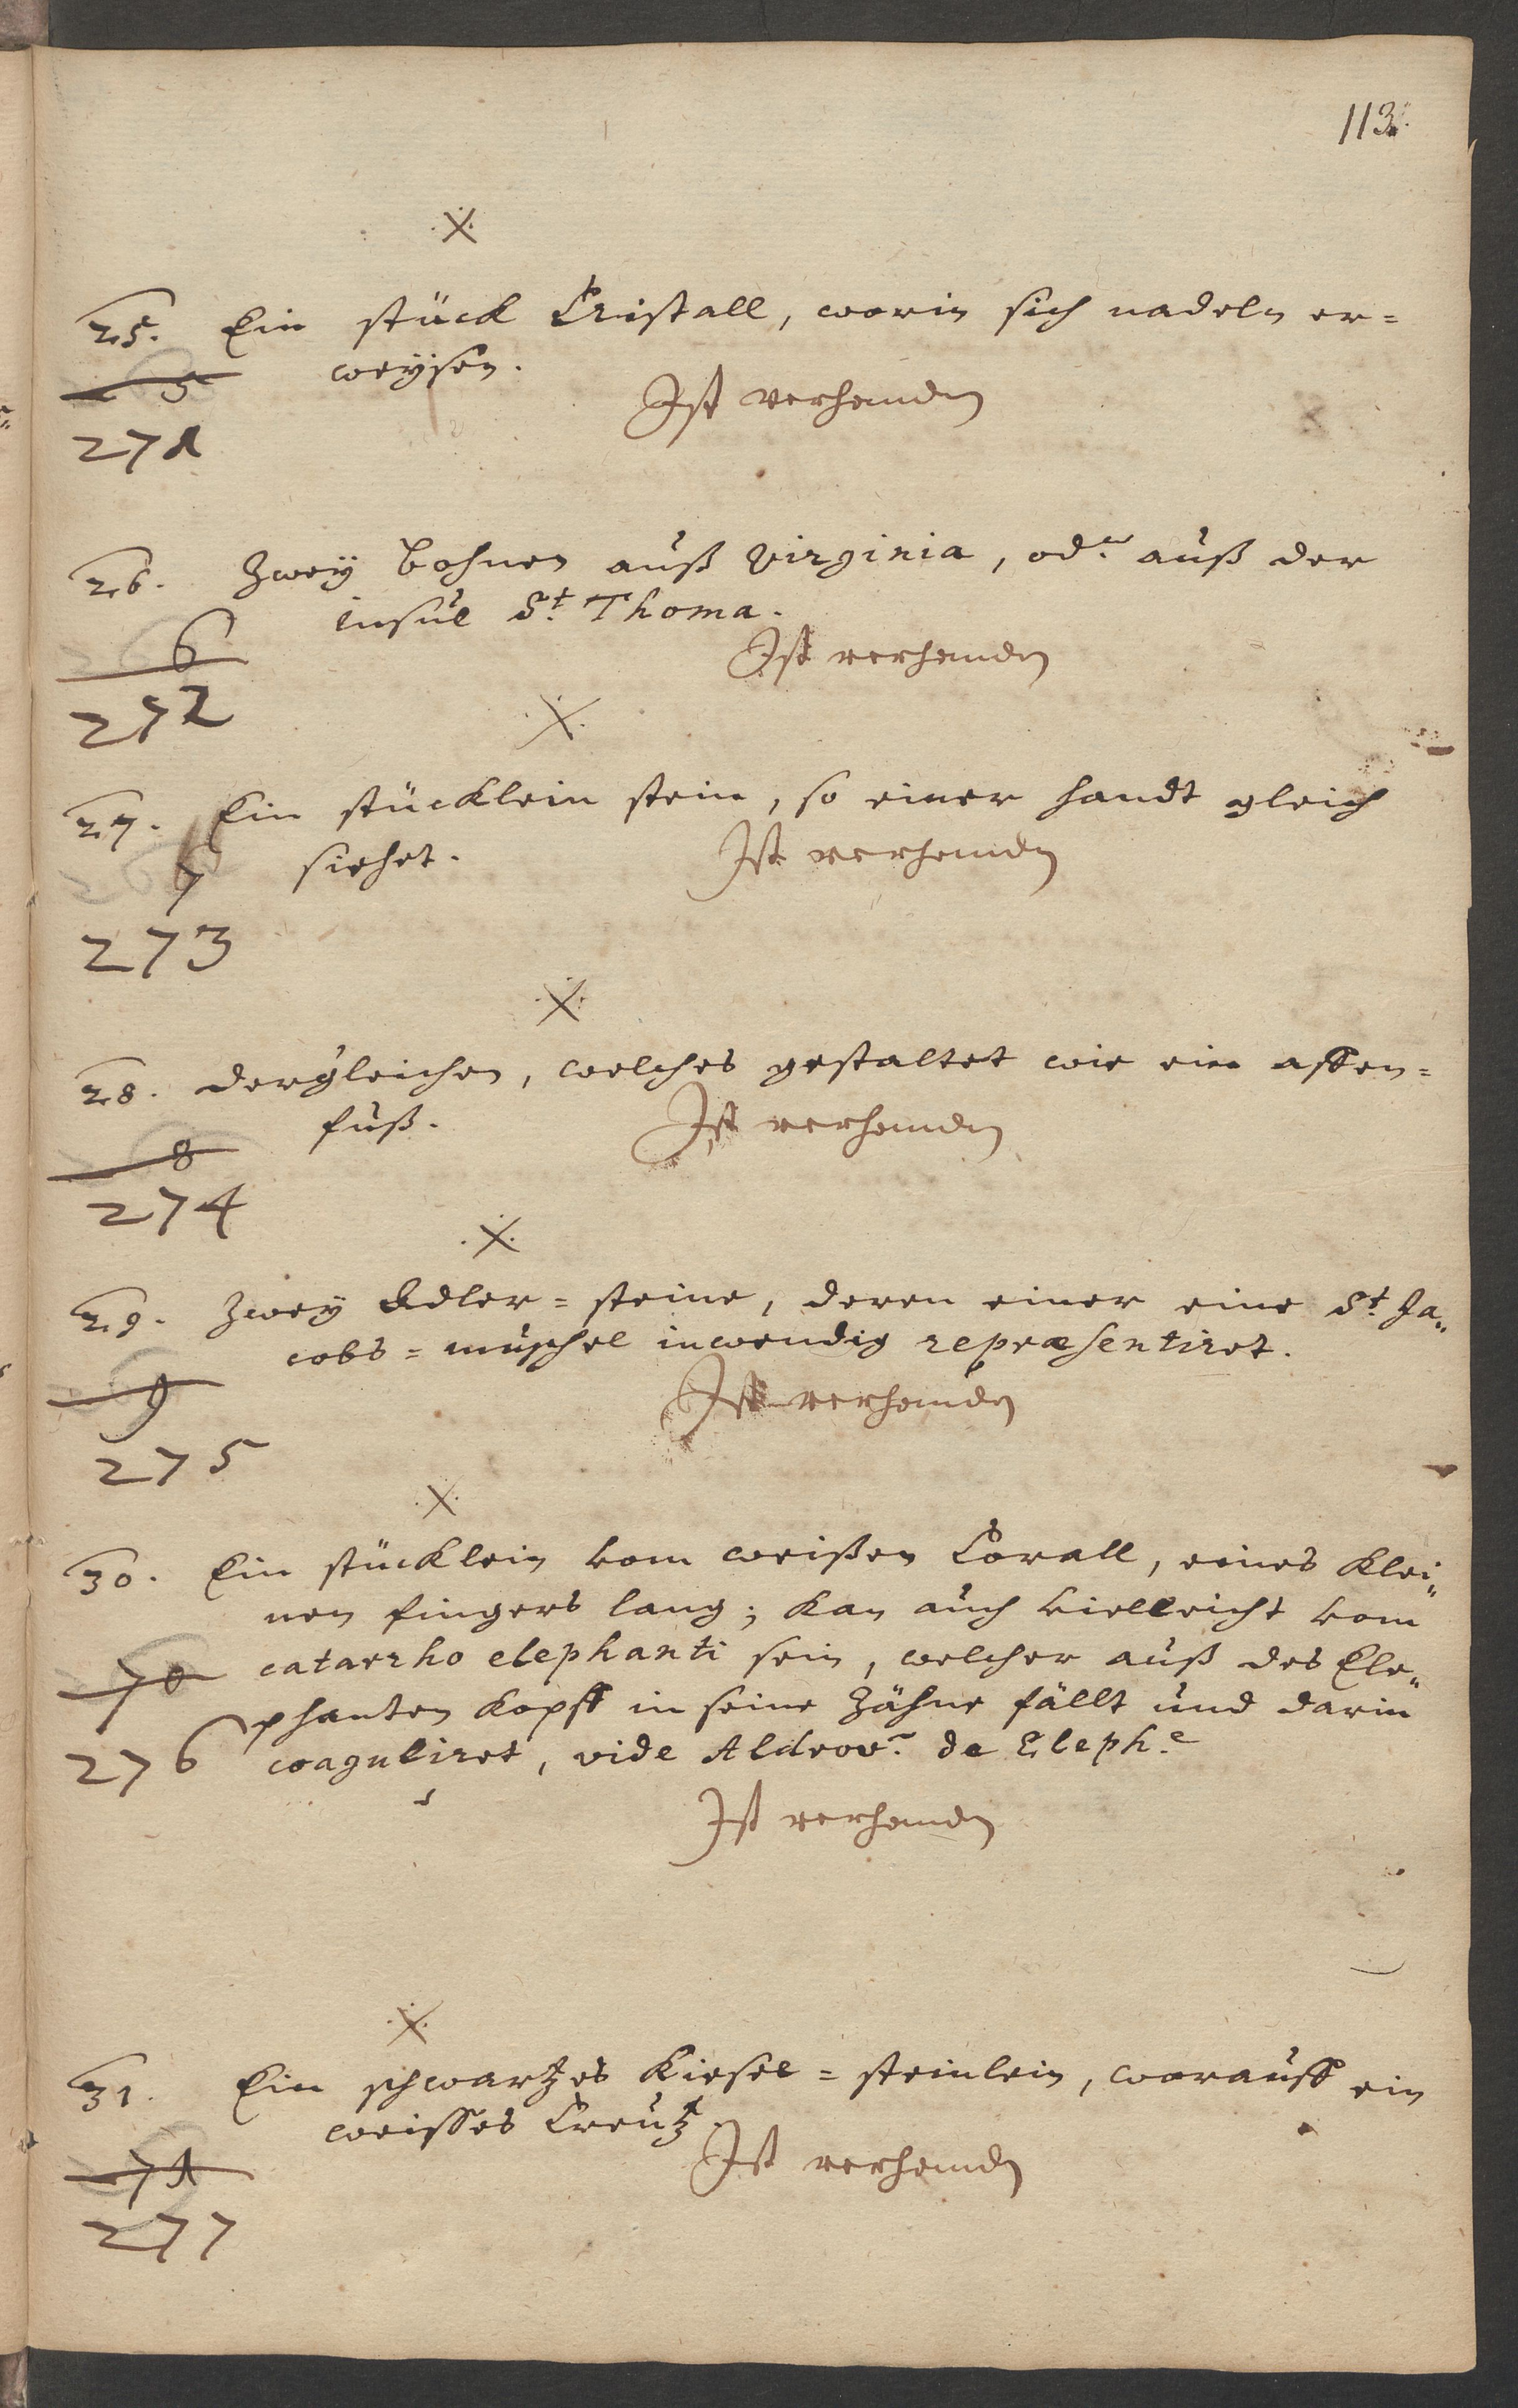 113.
25. Ein stück Cristall, worin sich nadeln er=
weÿsen.
Ist verhanden
271
26. Zweÿ bohnen auß Virginia, od. auß der
insul St. Thoma.
Ist verhanden
272
27. Ein stücklein stein, so einer handt gleich
siehet.
Ist verhanden
273
28. dergleichen, welches gestaltet wie ein affen=
fuß.
Ist verhanden
274
29. Zweÿ Adler=steine, deren einer eine St. Ja„
cobs=muschel inwendig repræsentiret.
Ist verhanden
275
30. Ein stücklein vom weißen Corall, eines klei„
nen fingers lang; kan auch vielleicht vom
catarrho elephanti sein, welcher auß des Ele„
phanten kopff in seine Zähne fällt und darin
276 coaguliret, vide Aldrov. de Eleph.
Ist verhanden
31. Ein schwartzes Kiesel=steinlein, worauff ein
weisses Creutz.
Ist verhanden
277